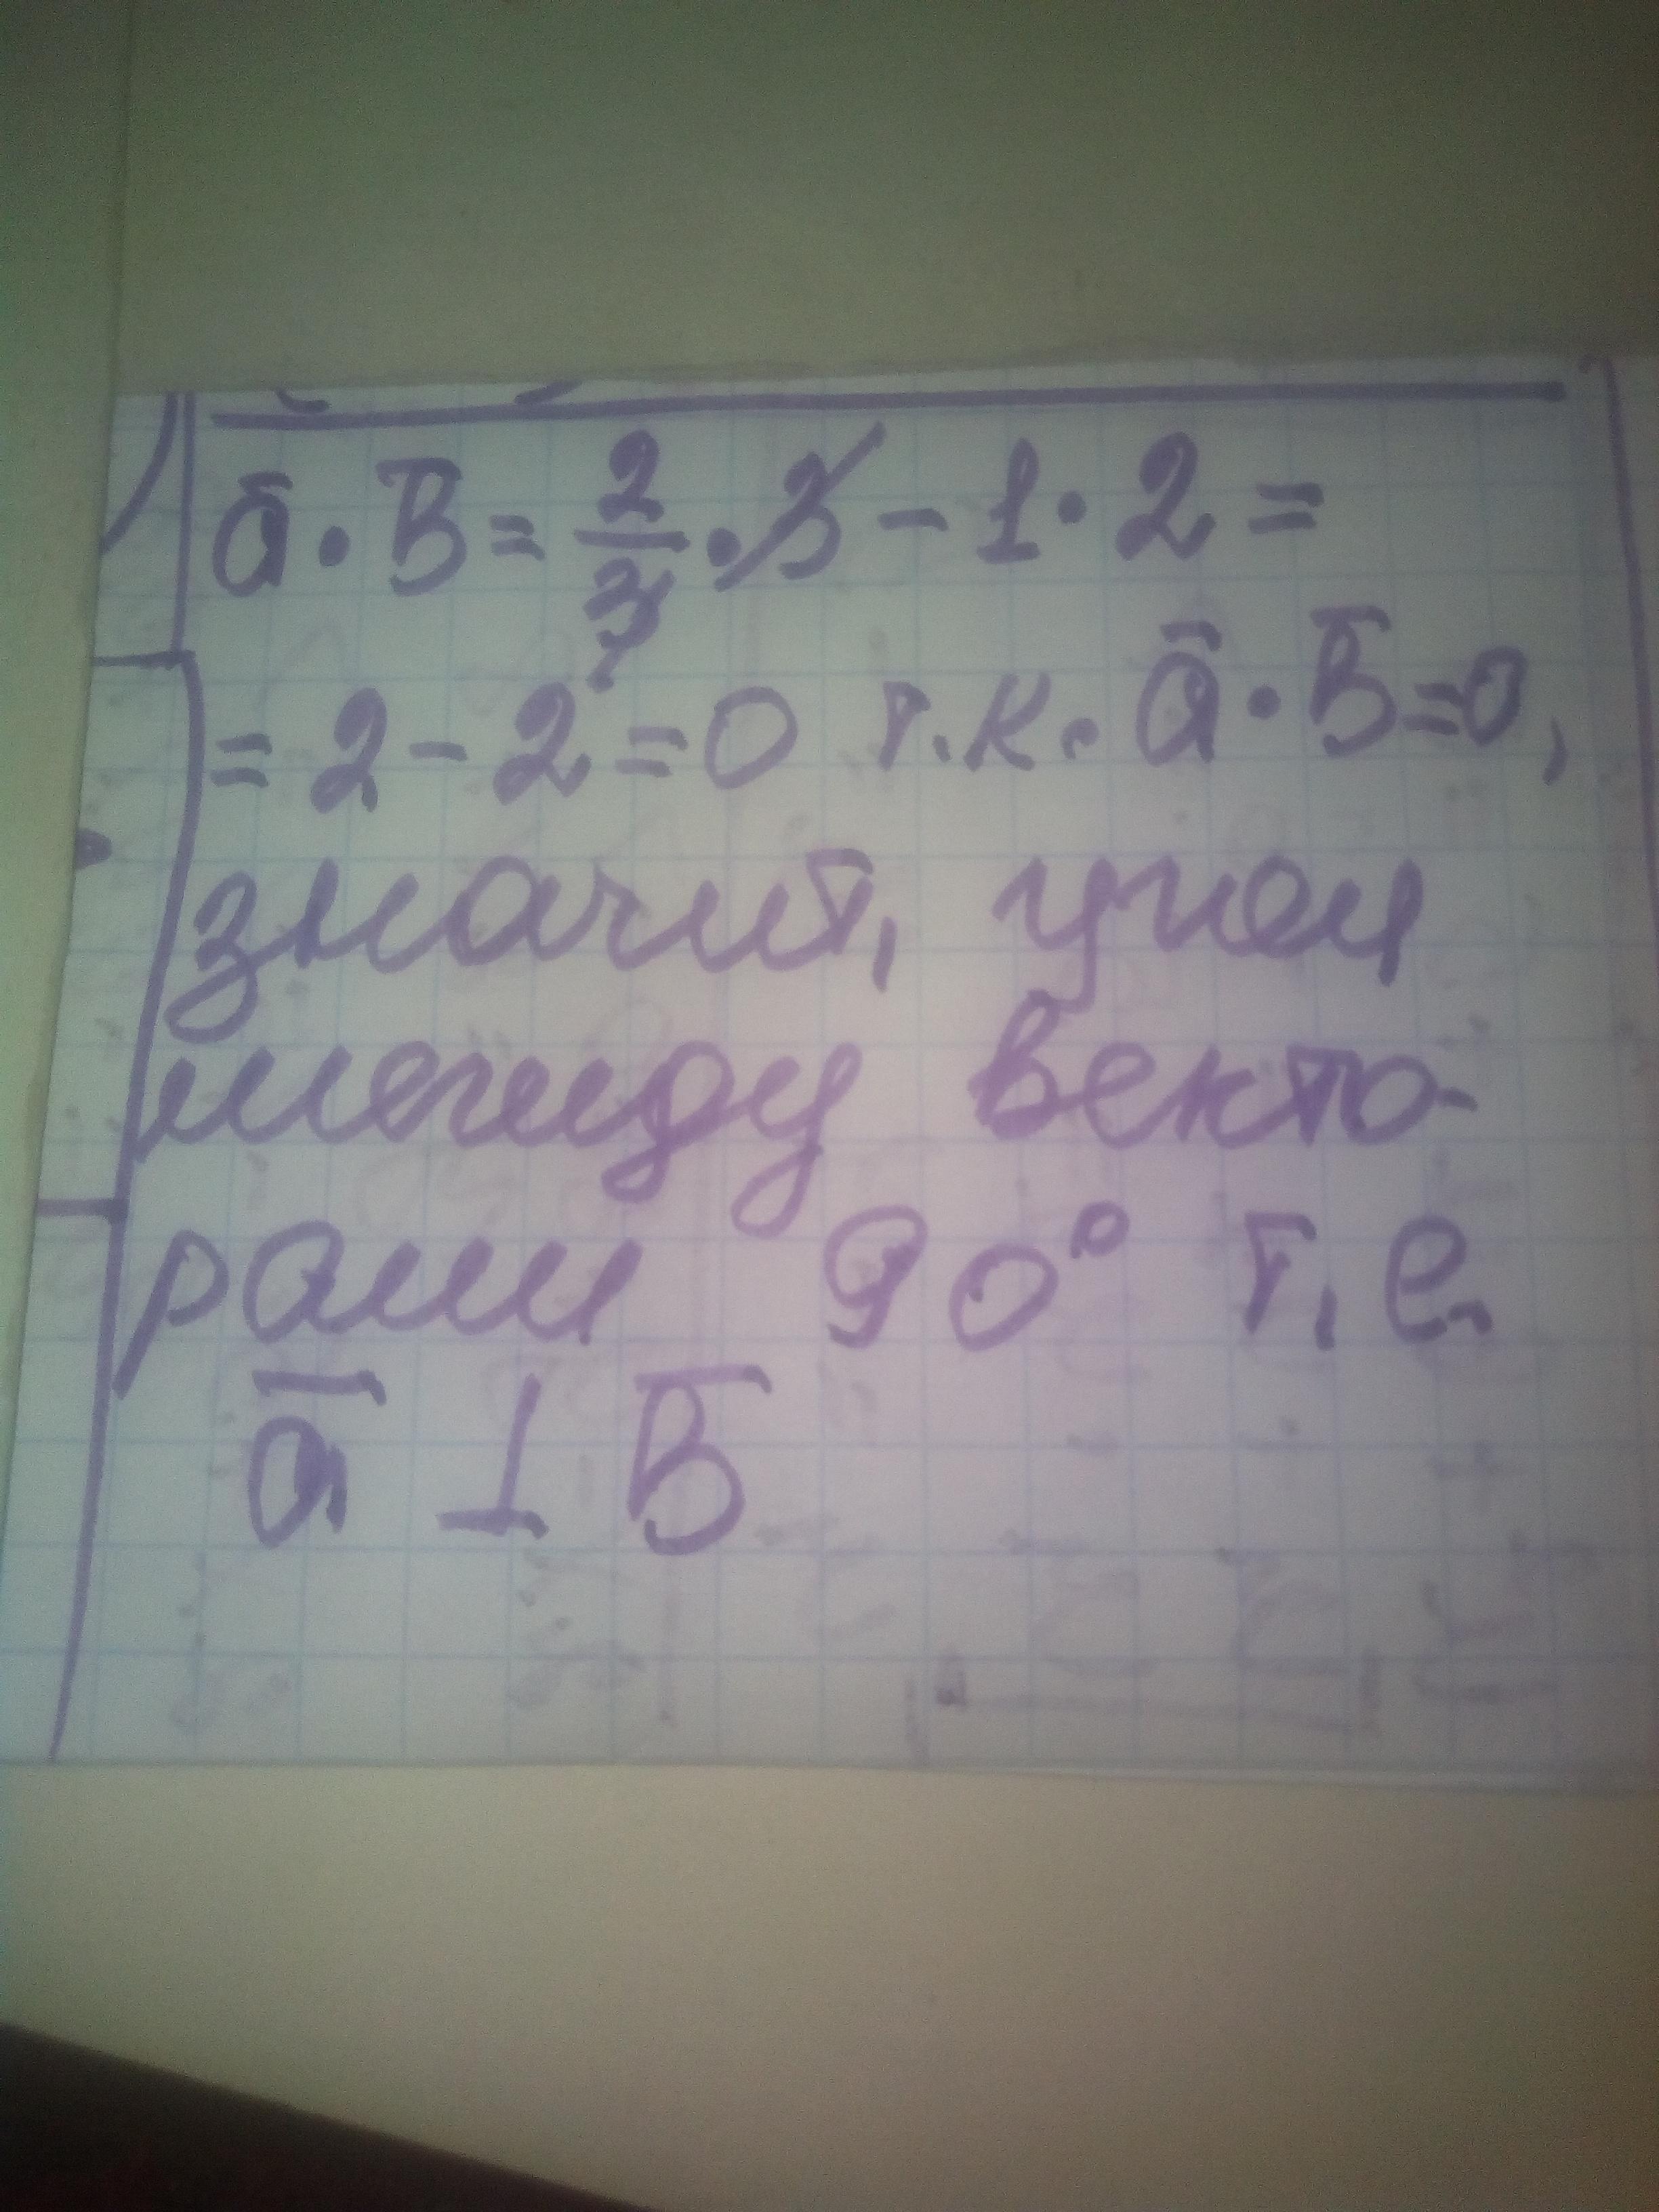 ā · B̄ = 2/3 · 3 - 1 · 2 =
= 2 - 2 = 0 т.к. ā · B̄ = 0,
значит, угол
между векто-
рами 90° т.е.
ā ⊥ B̄